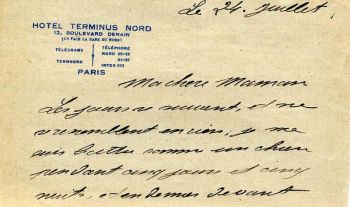 Le 24. Juillet.
HOTEL TERMINUS NORD
12, BOULEVARD DENAIN
(EN FACE LA GARE DU NORD)
TÉLÉGRAMS
TERMNORD
TÉLÉPHONE
NORD
INTER
PARIS
Ma chère Maman
Les jours se suivent, et ne
se ressemblent en rien, je me
suis battu comme un chien
pendant cinq jours et cinq
nuits, et en dernier devant